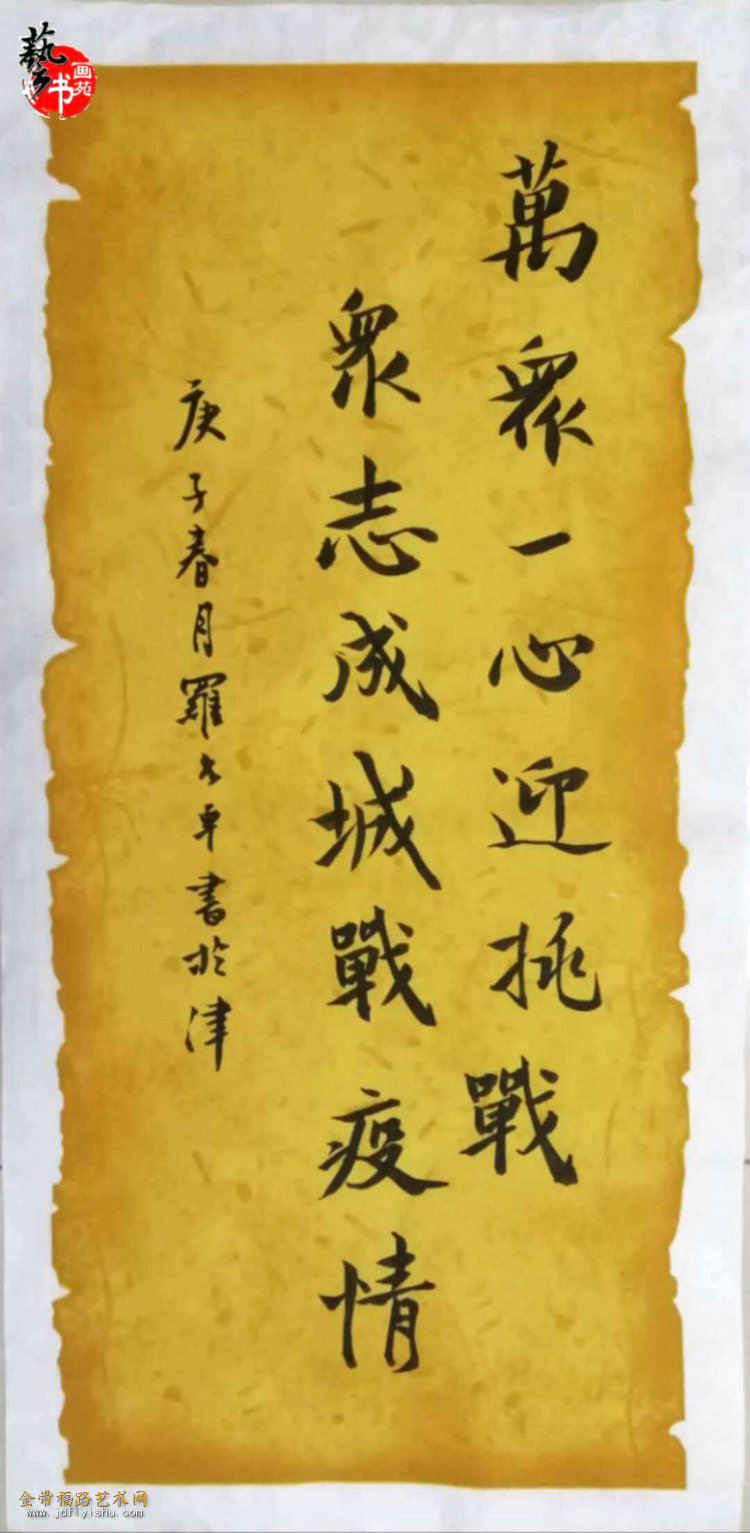 萬眾一心迎挑戰
眾志成城戰疫情
庚子春月羅士卓書於津
藝
书
画苑
金带福路艺术网
www.jdflyishu.com